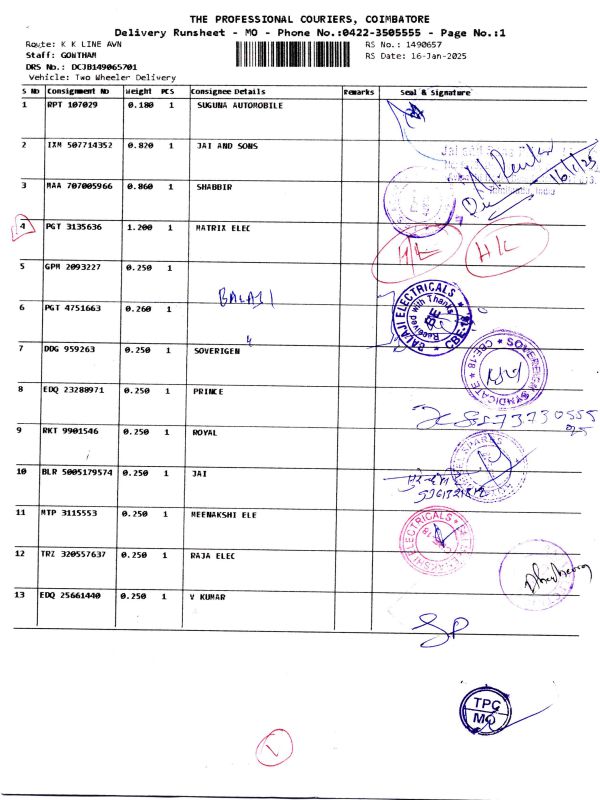 THE PROFESSIONAL COURIERS, COIMBATORE
Delivery Runsheet - MO - Phone No.:0422-3505555 - Page No.:1
Route: K K LINE AVN RS No.: 1490657
Staff: GOWTHAM RS Date: 16-Jan-2025
DRS No.: DCJB149065701
Vehicle: Two Wheeler Delivery
S No Consignment No Weight PCS Consignee Details Remarks Seal & Signature
1 RPT 107029 0.180 1 SUGUNA AUTOMOBILE
2 IXM 507714352 0.820 1 JAI AND SONS
16/1/25
3 MAA 707005966 0.860 1 SHABBIR
India
4 PGT 3135636 1.200 1 MATRIX ELEC
H/L H/L
5 GPM 2093227 0.250 1
BALAJI
6 PGT 4751663 0.260 1
BALAJI ELECTRICALS * CBE-18
Received with Thanks
7 DDG 959263 0.250 1 SOVERIGEN
SOVEREIGN SYNDICATE * CBE-18 *
8 EDQ 23288971 0.250 1 PRINCE
9 RKT 9901546 0.250 1 ROYAL
10 BLR 5005179574 0.250 1 JAI
11 MTP 3115553 0.250 1 MEENAKSHI ELE
12 TRZ 320557637 0.250 1 RAJA ELEC
13 EDQ 25661440 0.250 1 V KUMAR
SP
TPC
MO
1